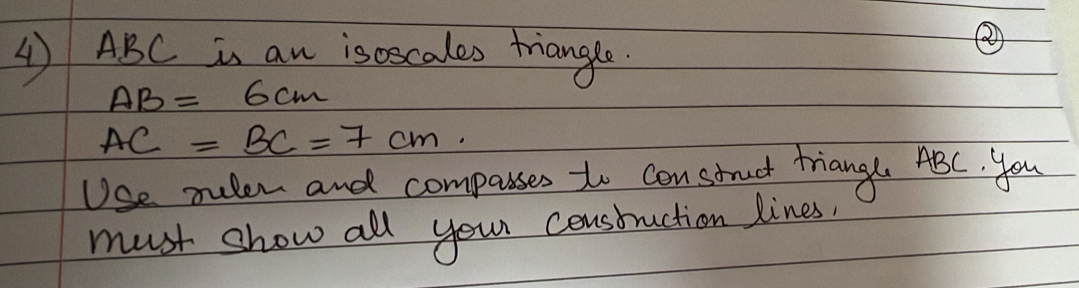 4) ABC is an isoscales triangle. ②
AB = 6cm
AC = BC = 7 cm.
Use ruler and compasses to construct triangle ABC. You
must show all your construction lines.